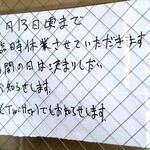 月13日頃まで
臨時休業させていただきます
開の日は決まりしだい
お知らせします
(Twitter)でもお知らせします